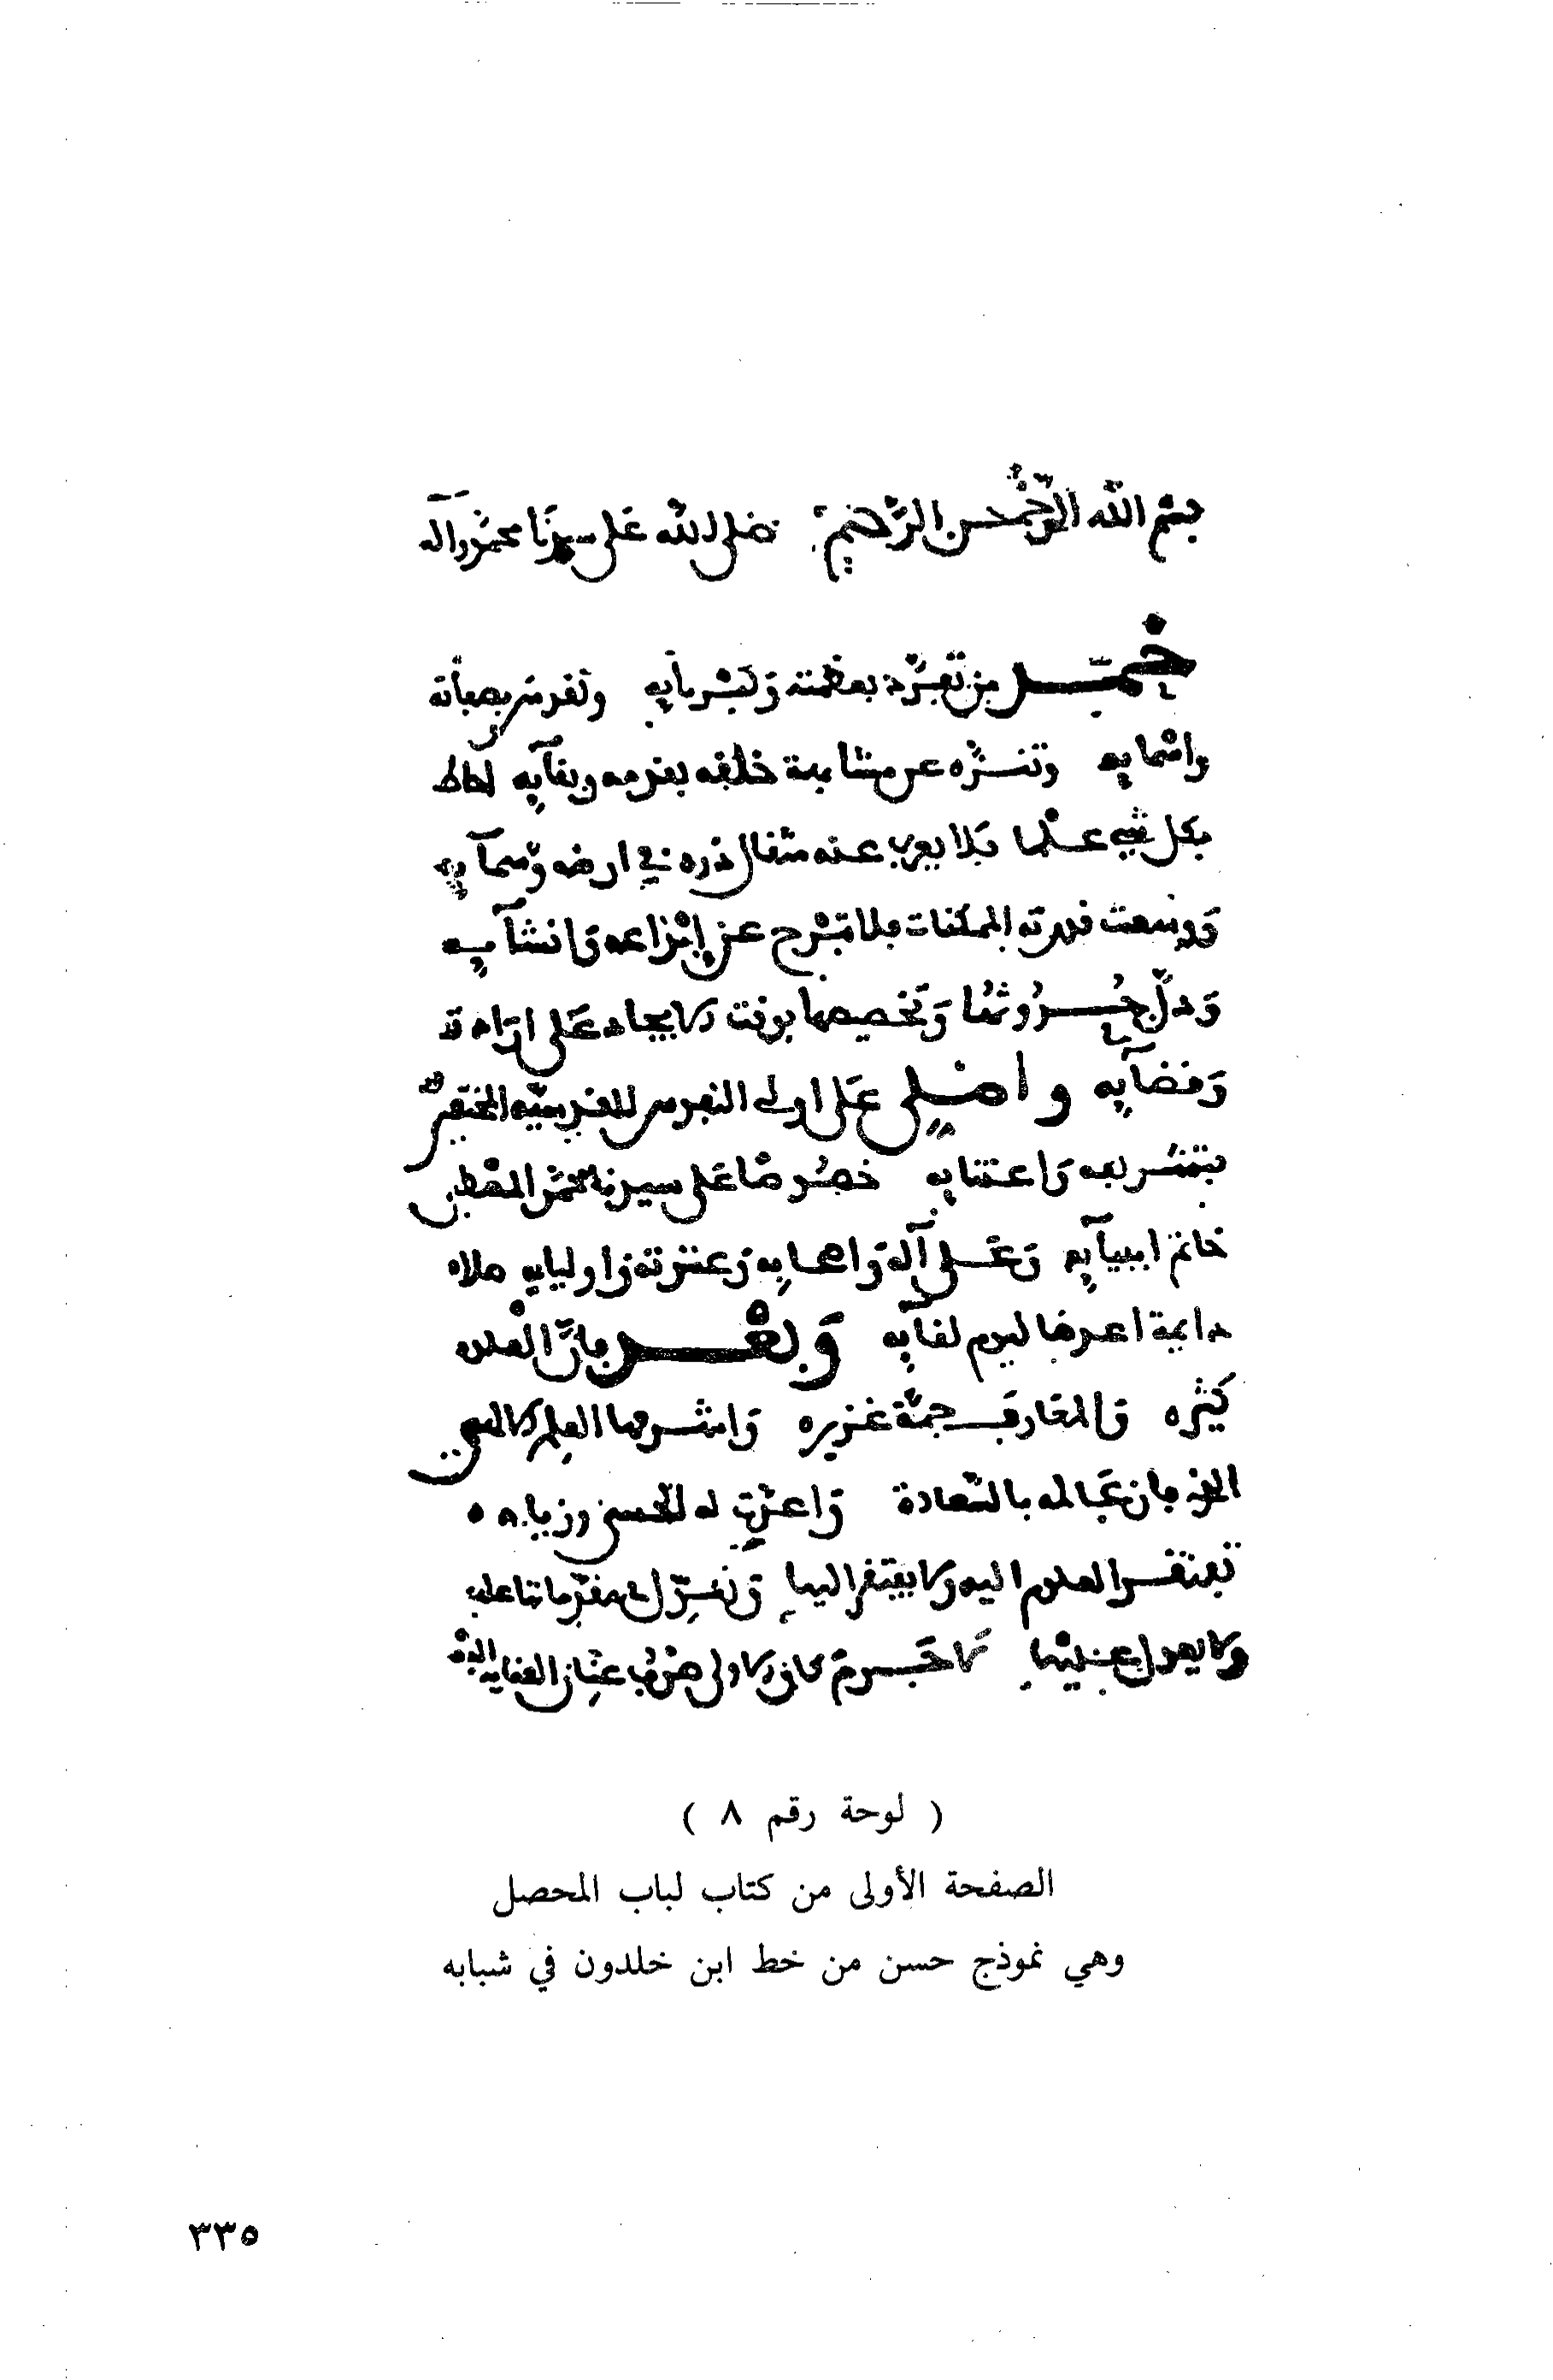 بسم الله الرحمن الرحيم صلى الله على سيدنا محمد وآله
نحمد من تفرد بعظمته وكبريائه وتقدس بصفاته
واسمائه وتنزه عن مشابهة خلقه بقدمه وبقآئه احاط
بكل شيء علما فلا يعزب عنه مثقال ذره في ارضه وسمآئه
ووسعت قدرته الممكنات فلا تبرح عن إبداعه وانشآئه
ودل حدوثها وتخصيصها بوقت الايجاد على ارادته
وقضآئه واصلي على اولى النفوس القدسيه
بتشريعه واعتنائه خصوصا على سيدنا محمد المصطفى
خاتم انبيآئه وعلى آله واصحابه وعترته واوليائه صلاه
دايمة اعدها ليوم لقآئه وبعد فإن العلوم
كثيره والمعارف جمة غزيره واشرفها العلم الالهي
الذي فاز عالمه بالسعادة واعدت له الحسنى وزياده
تفتقر العلوم اليه ولا يفتقر اليها وتعول مقدماتها عليه
ولا يعول عليها لا جرم كان الاولى صرف عنان العنايه اليه
( لوحة رقم ٨ )
الصفحة الأولى من كتاب لباب المحصل
وهي نموذج حسن من خط ابن خلدون في شبابه
٣٣٥